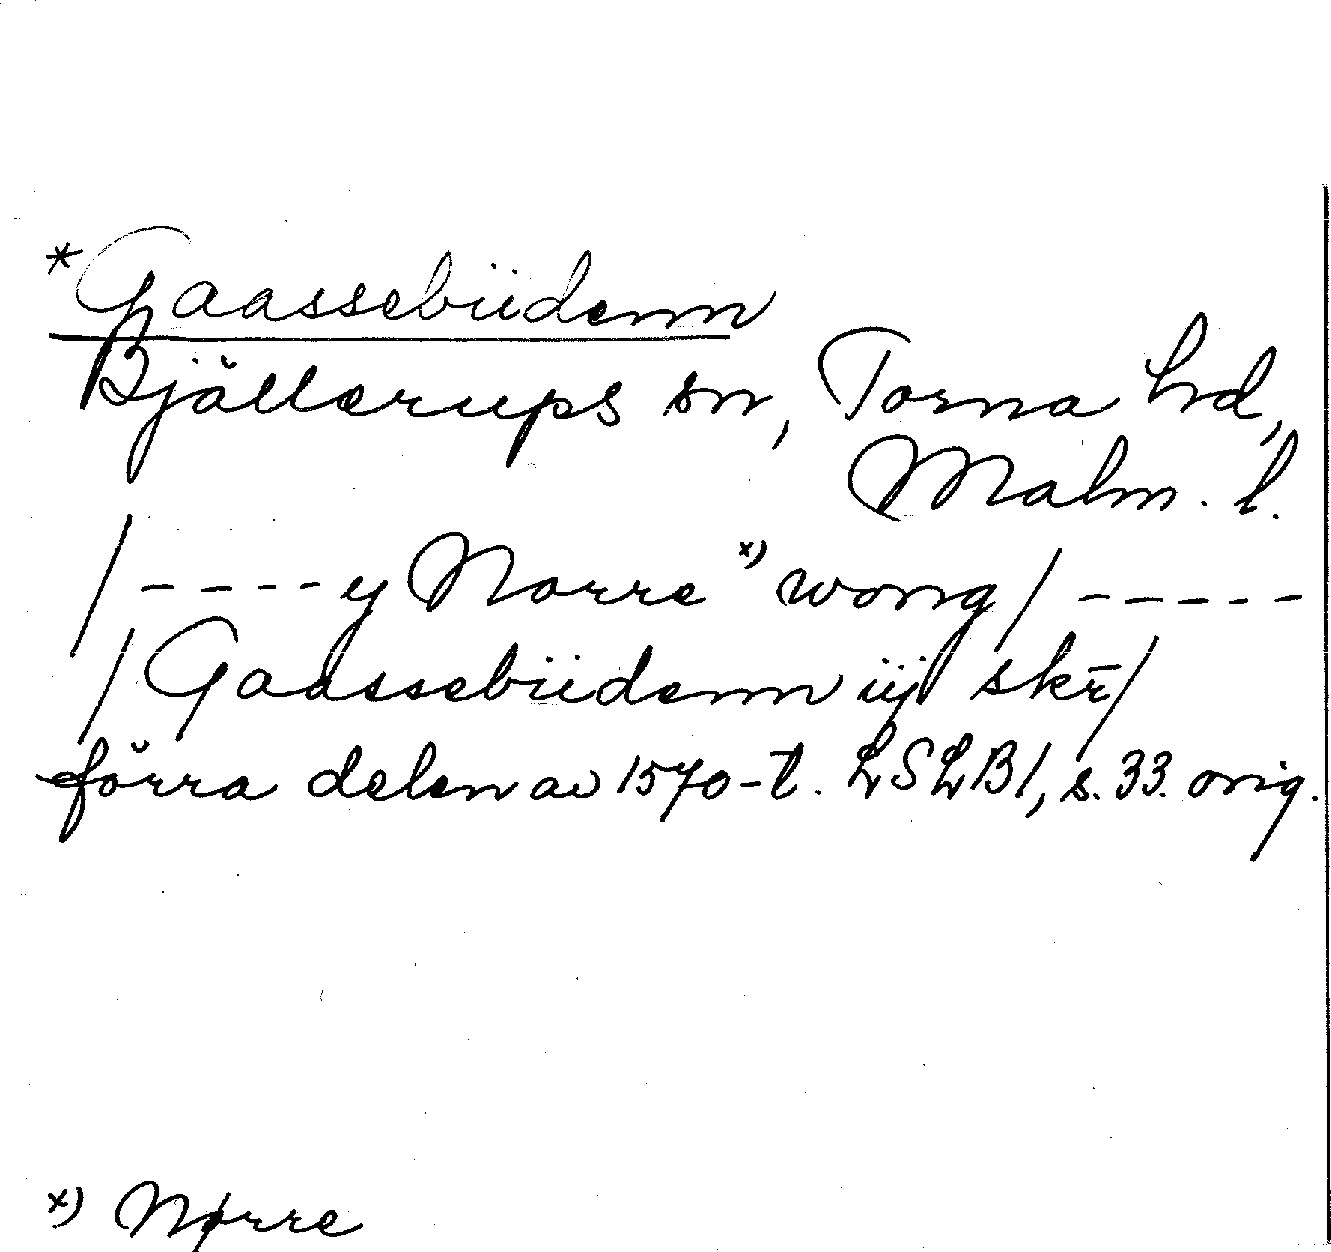 *Gaassebüdenn
Bjällerups sn, Torna hd,
Malm. l.
/----y Norre x) wong/-----
/Gaassebüdenn iij skr̄/
förra delen av 1570-t. LSLB1, s. 33. orig.
x) Nørre